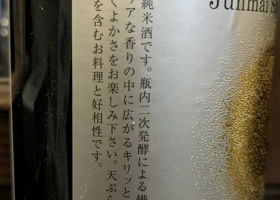 Junmai S
純米酒です。瓶内二次発酵による
アな香りの中に広がるキリッと
くよかさをお楽しみ下さい。天ぷら
を含むお料理と好相性です。